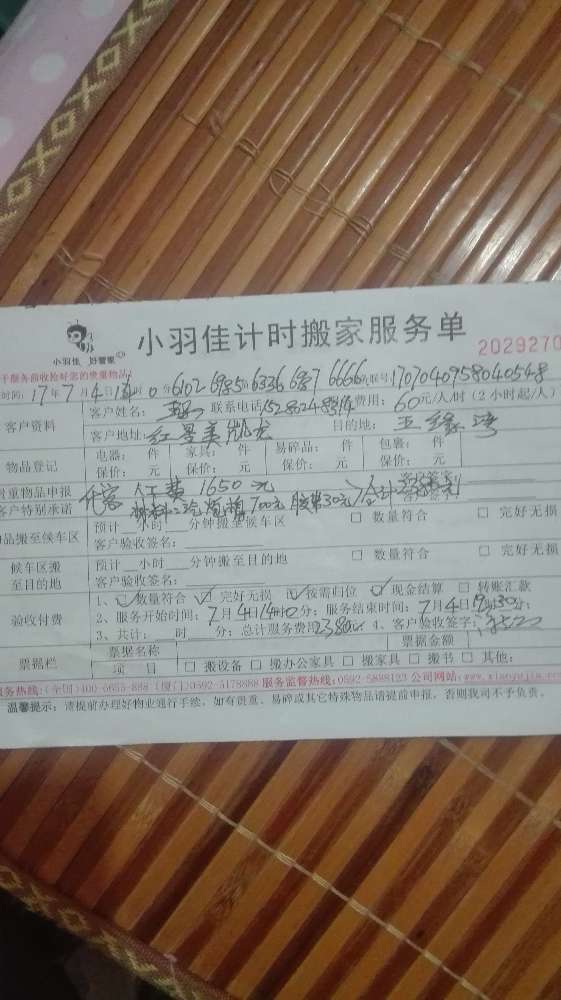 小羽佳 好管家
小羽佳计时搬家服务单
2029270
于服务前收捡好您的贵重物品!
时间: 17年7月4日 时0分 6102 6985 6336 6887 6666 联号 1707040958040548
客户资料
客户姓名: 联系电话 15280248314 费用: 60元/人/时(2小时起/人)
客户地址: 红星美凯龙 目的地: 五缘湾
物品登记
电器: 件 家具: 件 易碎品: 件 包裹: 件
保价: 元 保价: 元 保价: 元 保价: 元
贵重物品申报
客户特别承诺
人工费 1650元
700元 胶带30元 合计
品搬至候车区
预计__小时__分钟搬至候车区 □ 数量符合 □ 完好无损
客户验收签名:
候车区搬
至目的地
预计__小时__分钟搬至目的地 □ 数量符合 □ 完好无损
客户验收签名:
验收付费
1、☑数量符合 ☑完好无损 ☑按需归位 ☑现金结算 □ 转账汇款
2、服务开始时间: 7月4日14时0分; 服务结束时间: 7月4日 时30分;
3、共计:__时__分; 总计服务费用2380元 4、客户验收签字:
票据栏
票据名称 票据金额
项 目 □ 搬设备 □ 搬办公家具 □ 搬家具 □ 搬书 □ 其他:
服务热线:(全国)400-6655-888 (厦门)0592-5178888 服务监督热线:0592-5898123 公司网站:www.xiaoyujia.com
温馨提示: 请提前办理好物业通行手续, 如有贵重、易碎或其它特殊物品请提前申报, 否则我司不予负责。